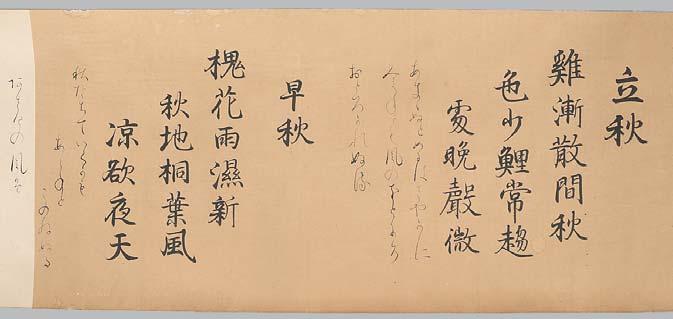 立秋
雞漸散間秋
色少鯉常趨
處晩聲微
あききぬとめにはさやかに
みえねとも風のおとにそ
おとろかれぬる
早秋
槐花雨濕新
秋地桐葉風
凉欲夜天
秋たちていくかも
あらねと
このねぬる
あさけの風は